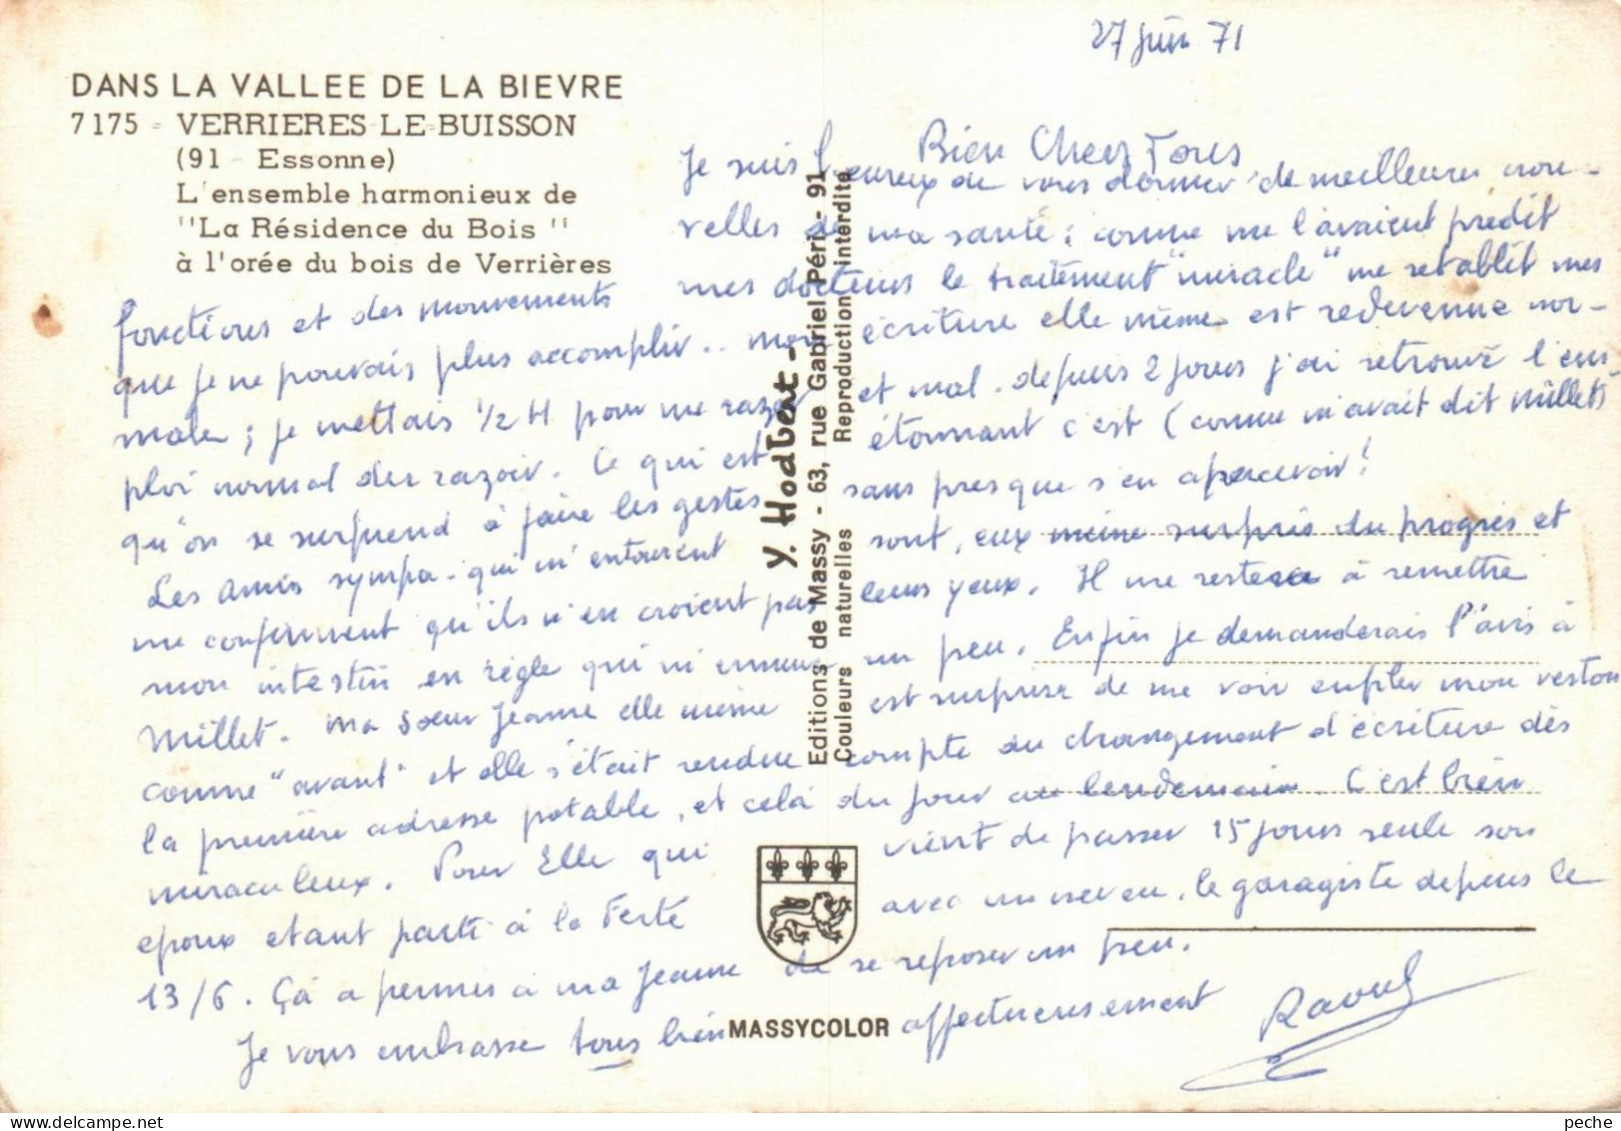 27 Juin 71
DANS LA VALLEE DE LA BIEVRE
7175 - VERRIERES-LE-BUISSON
(91 - Essonne)
L'ensemble harmonieux de
"La Résidence du Bois"
à l'orée du bois de Verrières
Bien Chers Tous
Je suis heureux de vous donner de meilleures nou-
velles de ma santé ; comme me l'avaient prédit
mes docteurs le traitement "miracle" me rétablit mes
fonctions et des mouvements
que je ne pouvais plus accomplir.. mon écriture elle même est redevenue nor-
male ; je mettais 1/2 H pour me razer et mal - depuis 2 jours j'ai retrouvé l'em-
ploi normal du razoir. Ce qui est étonnant c'est (comme m'avait dit Millet)
qu'on se surprend à faire les gestes sans presque s'en apercevoir !
Les amis sympa - qui m'entourent sont, eux même surpris du progrès et
me confirment qu'ils n'en croient pas leurs yeux. Il me reste à remettre
mon intestin en règle qui m'ennuie un peu. Enfin je demanderais l'avis à
Millet. Ma soeur Jeanne elle même est surprise de me voir enfiler mon veston
comme "avant" et elle s'était rendue compte du changement d'écriture dès
la première adresse potable, et celà du jour au lendemain. C'est bien
miraculeux. Pour Elle qui vient de passer 15 jours seule son
époux étant parti à la Ferté avec un neveu, le garagiste depuis le
13/6. Çà a permis à ma Jeanne de se reposer un peu.
Je vous embrasse tous bien affectueusement
Raoul
Y. Hodbert -
Editions de Massy - 63, rue Gabriel Péri - 91
Couleurs naturelles Reproduction interdite
MASSYCOLOR
peche